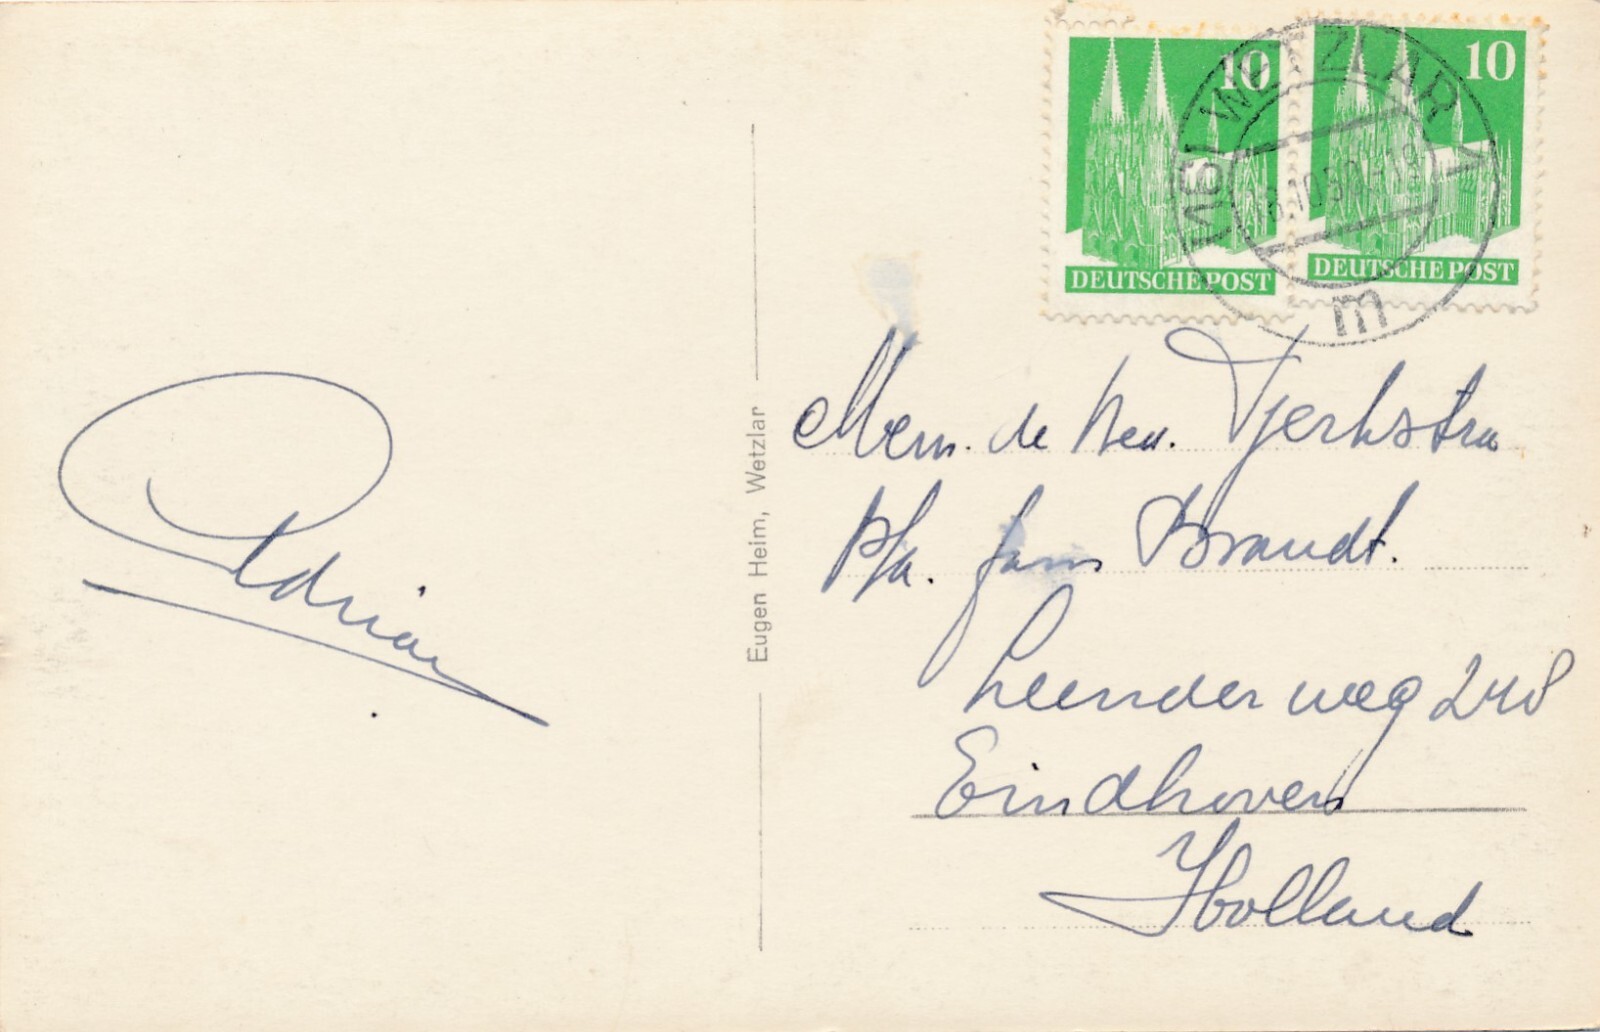 10
10
DEUTSCHE POST
DEUTSCHE POST
(16) WETZLAR 1
18.10.50.-19
m
Adrian
Eugen Heim, Wetzlar
Mevr. de Wed. Tjerkstra
P/a. Jans Brandt.
Leenderweg 248
Eindhoven
Holland